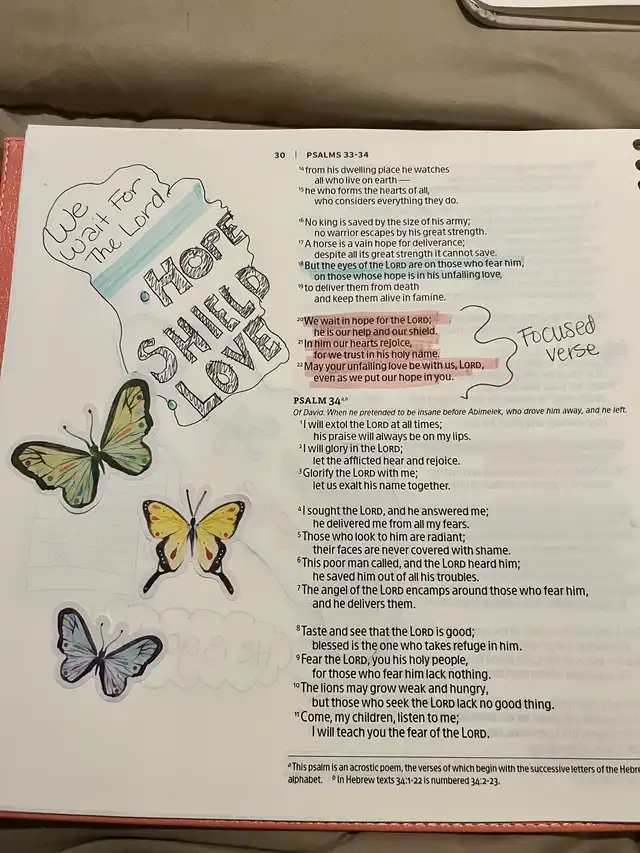 We
Wait For
The Lord
HOPE
SHIELD
LOVE
30 | PSALMS 33-34
14 from his dwelling place he watches
all who live on earth—
15 he who forms the hearts of all,
who considers everything they do.
16 No king is saved by the size of his army;
no warrior escapes by his great strength.
17 A horse is a vain hope for deliverance;
despite all its great strength it cannot save.
18 But the eyes of the LORD are on those who fear him,
on those whose hope is in his unfailing love,
19 to deliver them from death
and keep them alive in famine.
20 We wait in hope for the LORD;
he is our help and our shield.
21 In him our hearts rejoice,
for we trust in his holy name.
22 May your unfailing love be with us, LORD,
even as we put our hope in you.
Focused
verse
PSALM 34 a,b
Of David. When he pretended to be insane before Abimelek, who drove him away, and he left.
1 I will extol the LORD at all times;
his praise will always be on my lips.
2 I will glory in the LORD;
let the afflicted hear and rejoice.
3 Glorify the LORD with me;
let us exalt his name together.
4 I sought the LORD, and he answered me;
he delivered me from all my fears.
5 Those who look to him are radiant;
their faces are never covered with shame.
6 This poor man called, and the LORD heard him;
he saved him out of all his troubles.
7 The angel of the LORD encamps around those who fear him,
and he delivers them.
8 Taste and see that the LORD is good;
blessed is the one who takes refuge in him.
9 Fear the LORD, you his holy people,
for those who fear him lack nothing.
10 The lions may grow weak and hungry,
but those who seek the LORD lack no good thing.
11 Come, my children, listen to me;
I will teach you the fear of the LORD.
a This psalm is an acrostic poem, the verses of which begin with the successive letters of the Hebre
alphabet. b In Hebrew texts 34:1-22 is numbered 34:2-23.